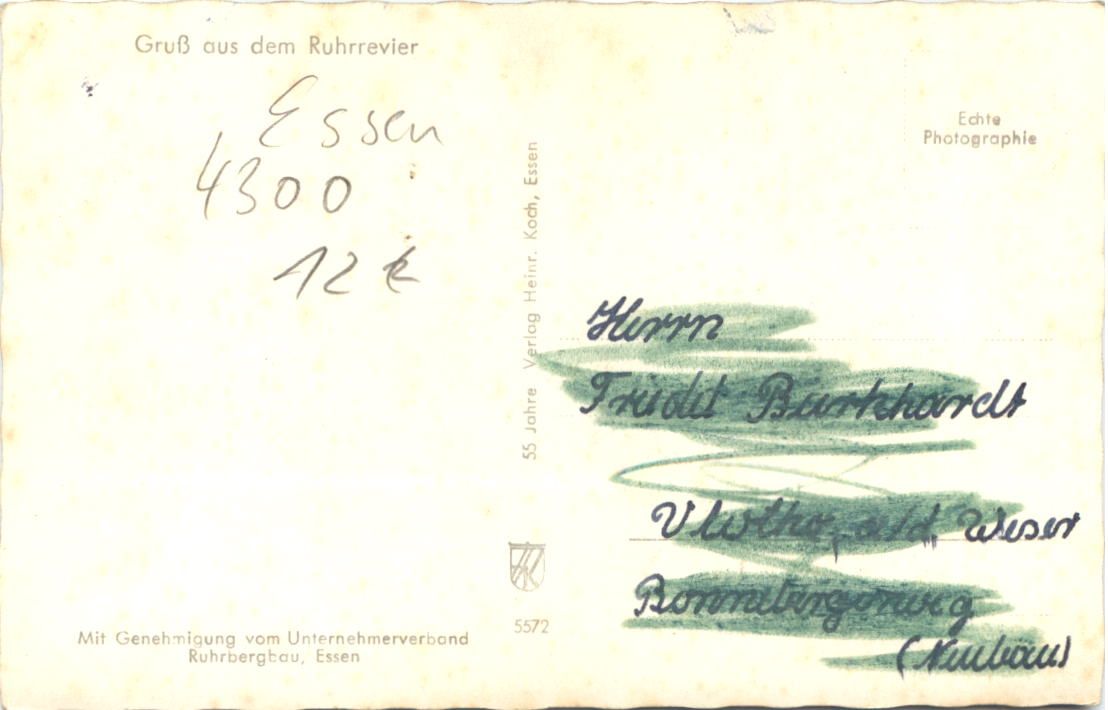 Gruß aus dem Ruhrrevier
Essen
4300
12 €
Mit Genehmigung vom Unternehmerverband
Ruhrbergbau, Essen
55 Jahre Verlag Heinr. Koch, Essen
5572
Echte
Photographie
Herrn
Burkhardt
Vlotho, a/d. Weser
Bonnebergerweg
(Neubau)